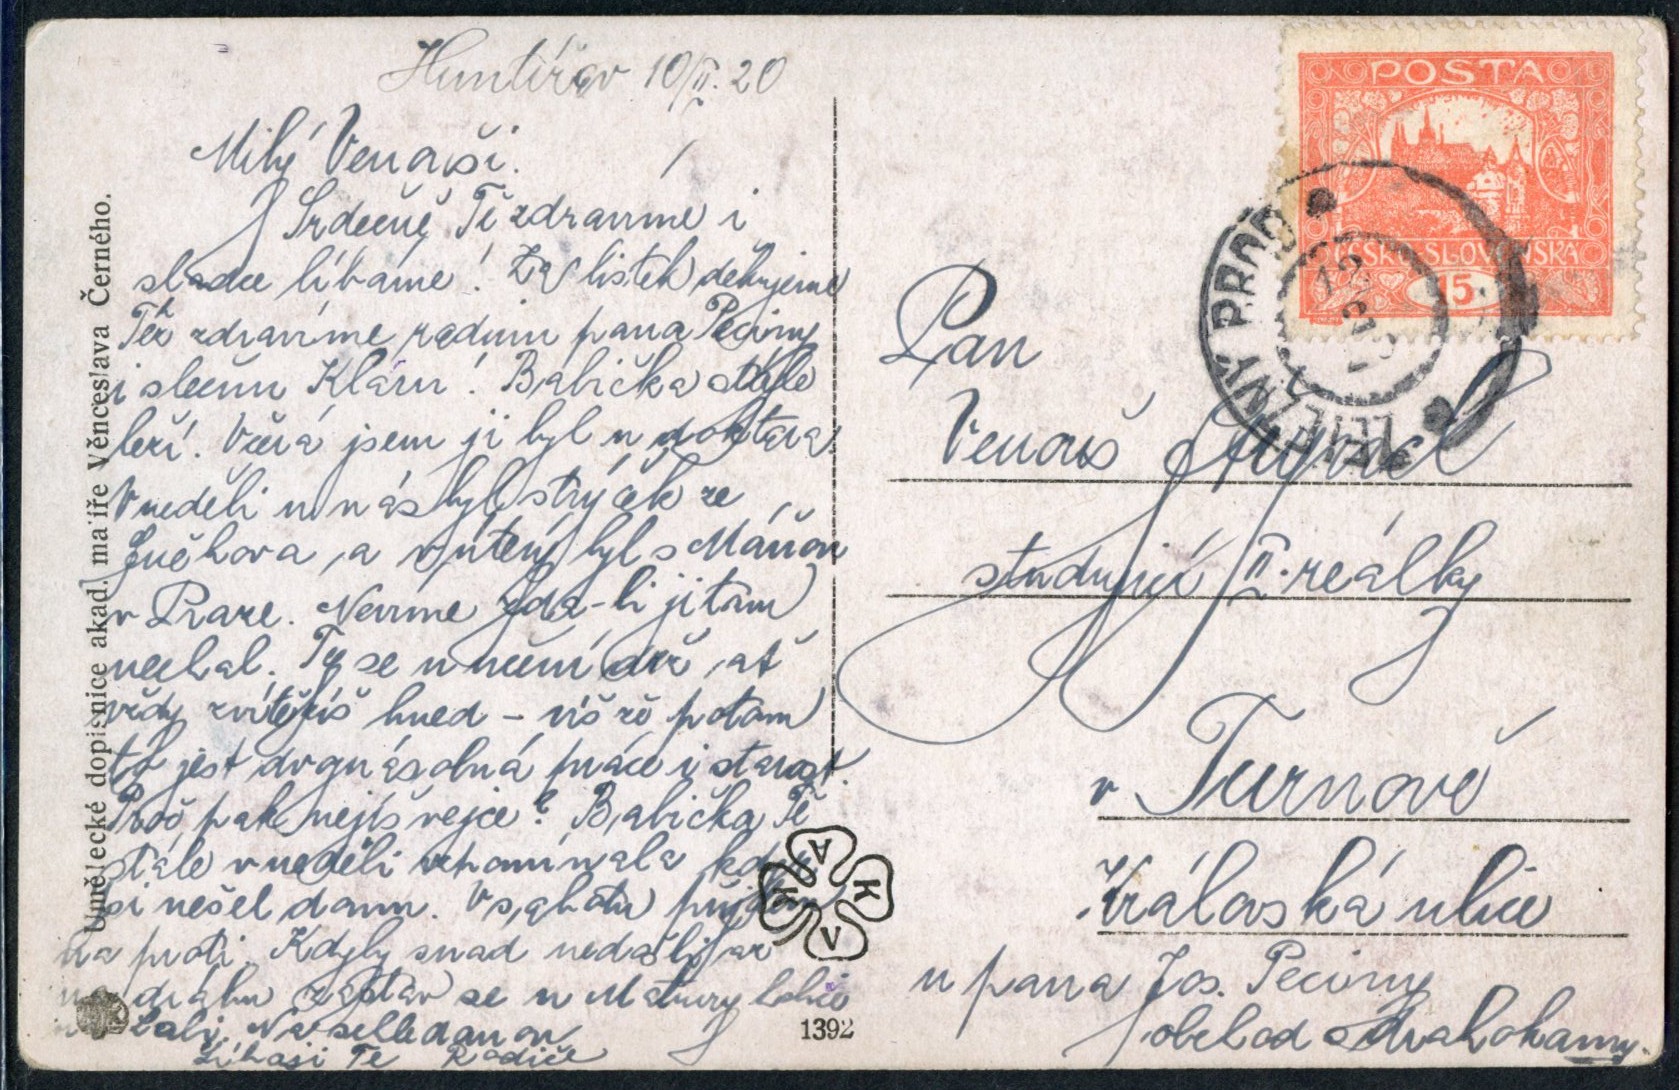 Huntířov 10/II. 20
Milý Venouši.
Srdečně Tě zdravíme i
sladce líbáme! Za lístek děkujeme
Též zdravíme rodinu pana Peciny
i slečnu Kláru! Babička stále
leží. Včera jsem jí byl u doktora
V neděli u nás byl strýček ze
a v úterý byl s Máňou
v Praze. Nevíme zda-li ji tam
nechal. Ty se v učení drž, ať
vždy zvítězíš hned - víš že potom
to jest dvojnásobná práce i starost.
Proč pak nejíš vejce? Babička Tě
stále v neděli vzpomínala
si nešel domu. V sobotu přijdem
na proti. Kdyby snad
na dráhu zastav se u
Na shledanou
Líbají Tě Rodiče
Umělecké dopisnice akad. malíře Věnceslava Černého.
VAKA
1392
POSTA
ČESKO-SLOVENSKÁ
15
ŽELEZNÝ BROD
12
Pan
Venouš
studující II. reálky
v Turnově
Královská ulice
u pana Jos. Peciny
obchod s drahokamy.